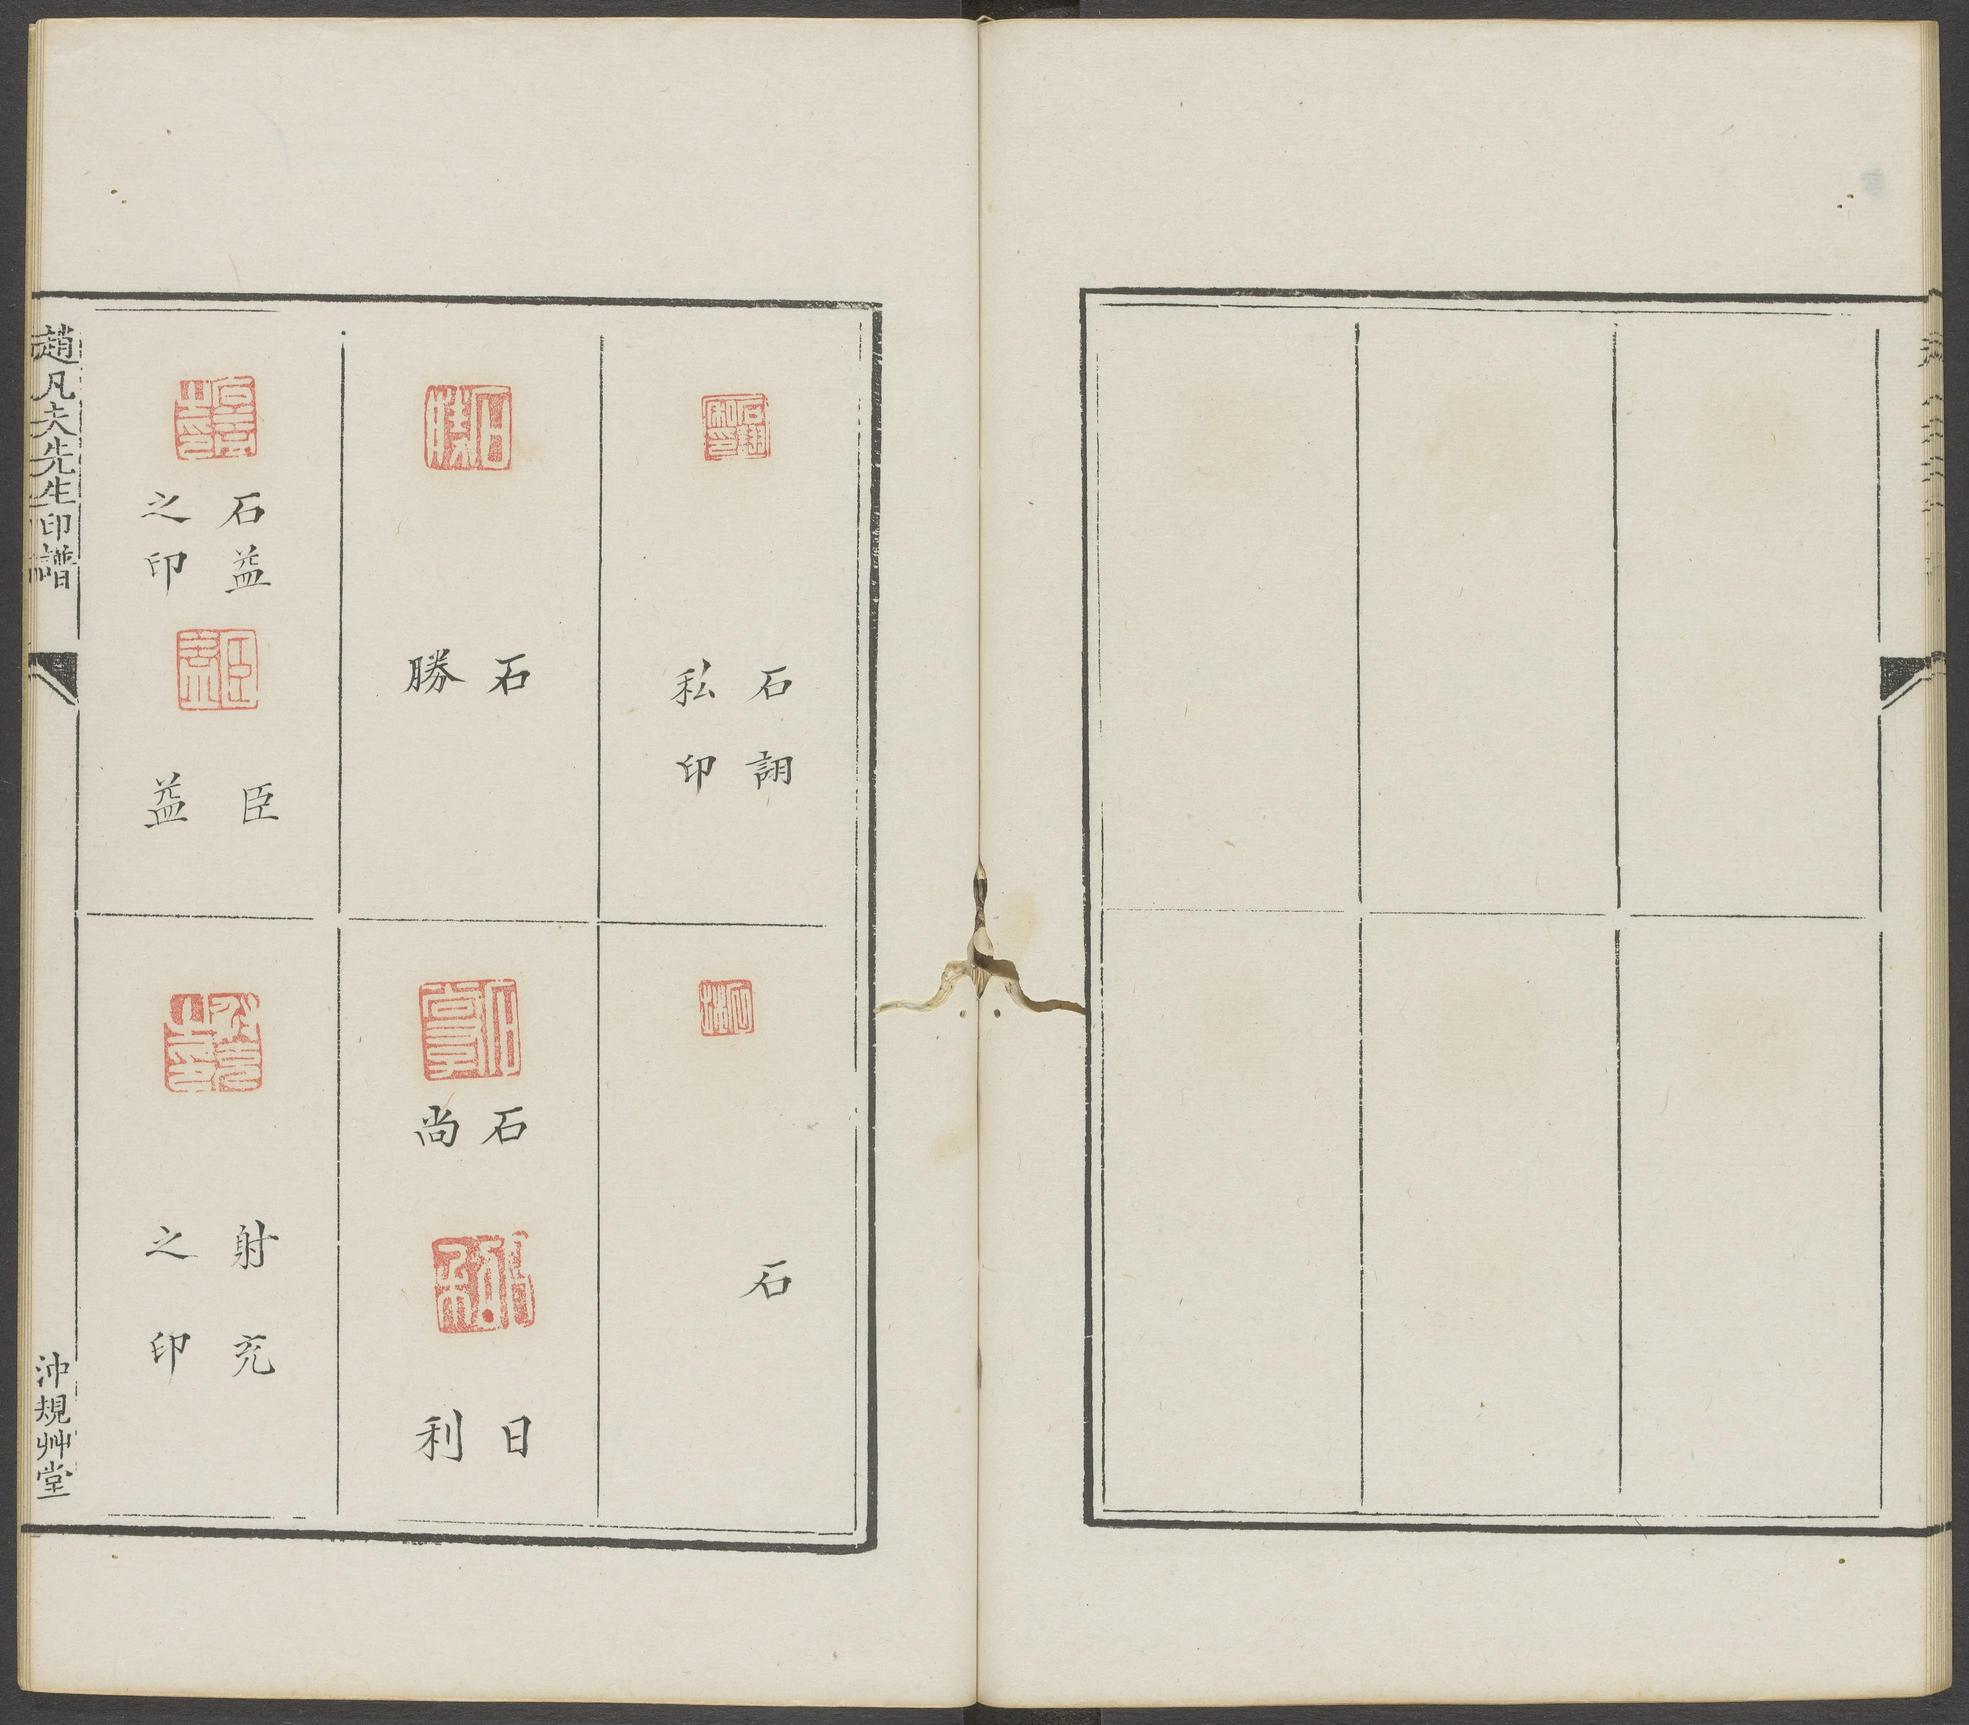 石詡
私印
石
石
勝
石
尚
日
利
石益
之印
臣
益
射充
之印
趙凡夫先生印譜
沖規艸堂